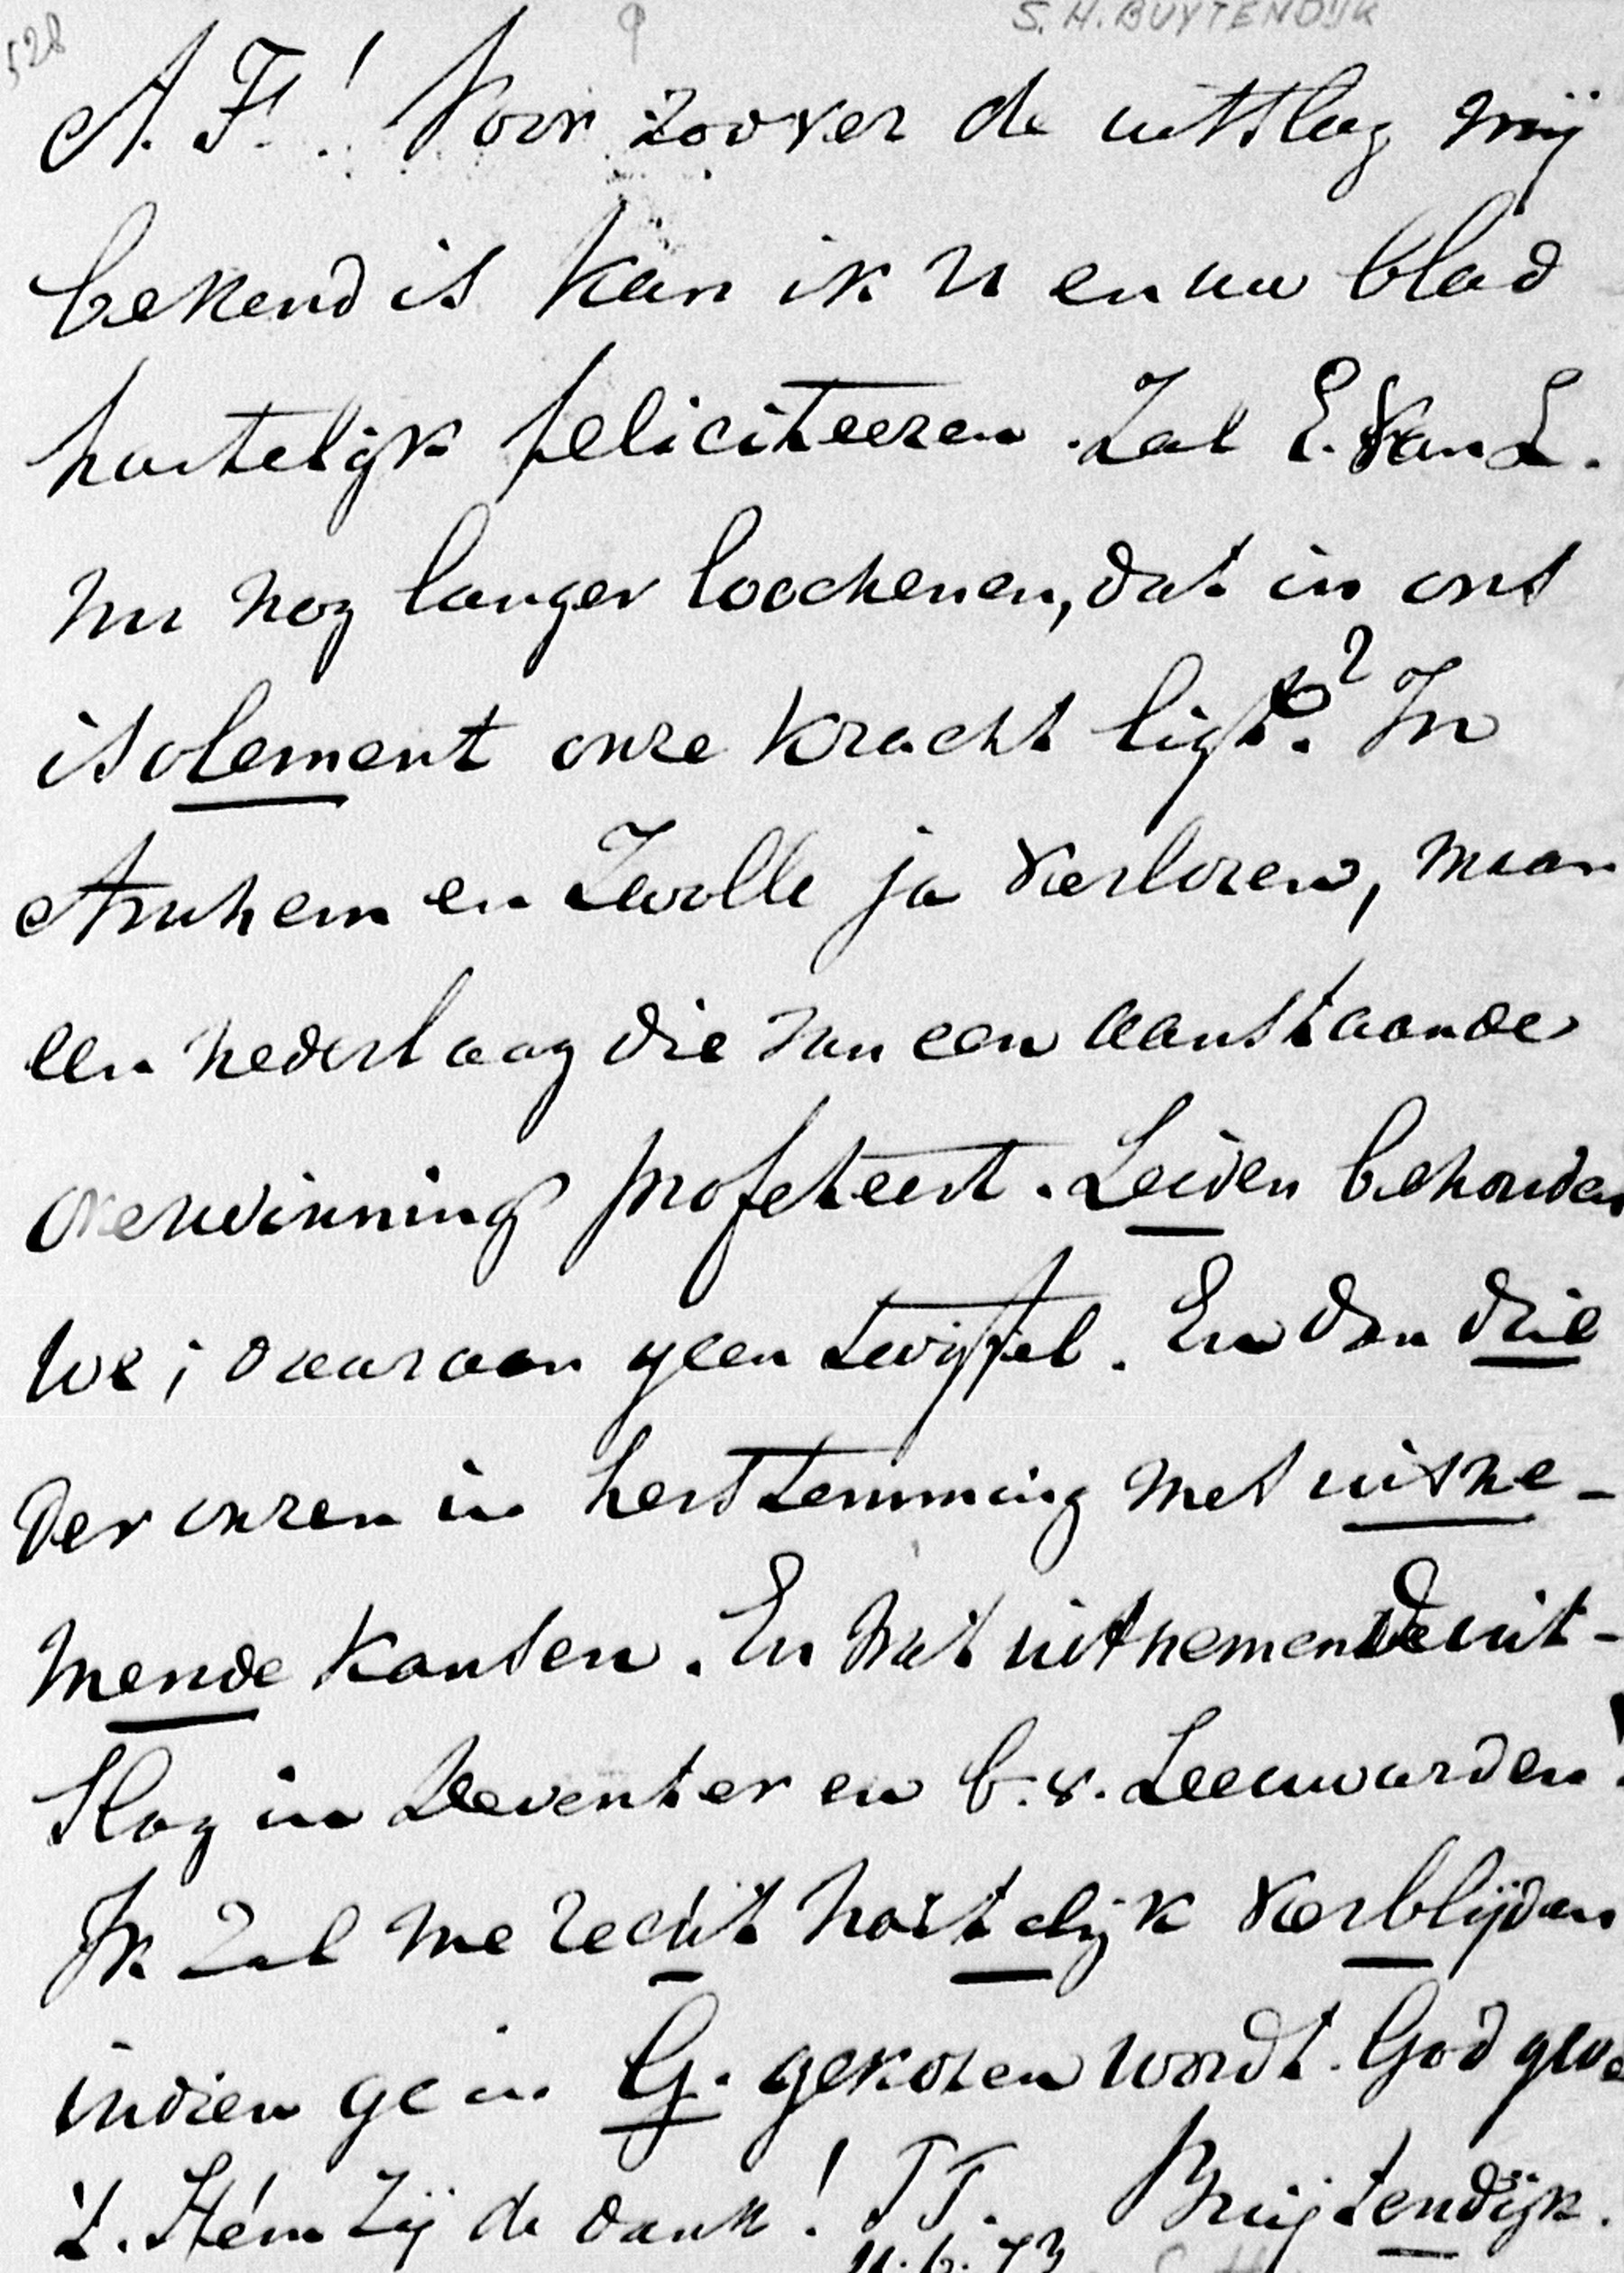 528
S. H. BUYTENDIJK
A. F.! Voor zoover de uitslag mij
bekend is kan ik U en uw blad
hartelijk feliciteeren. Zal E. van L.
nu nog langer loochenen, dat in ons
isolement onze kracht ligt? In
Arnhem en Zwolle ja verloren, maar
een nederlaag die van een aanstaande
overwinning profeteert. Leiden behouden
we; daaraan geen twijfel. En dan drie
der onzen in herstemming met uitne-
mende kansen. En wat uitnemende uit-
slag in Deventer en b.v. Leeuwarden!
Ik zal me recht hartelijk verblijden
indien ge in G. gekozen wordt. God geve
't. Hém zij de dank! TT. Buijtendijk.
11.6.73